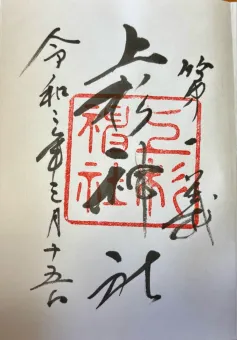 第一義
上杉神社
令和三年三月十五日
上杉
神社